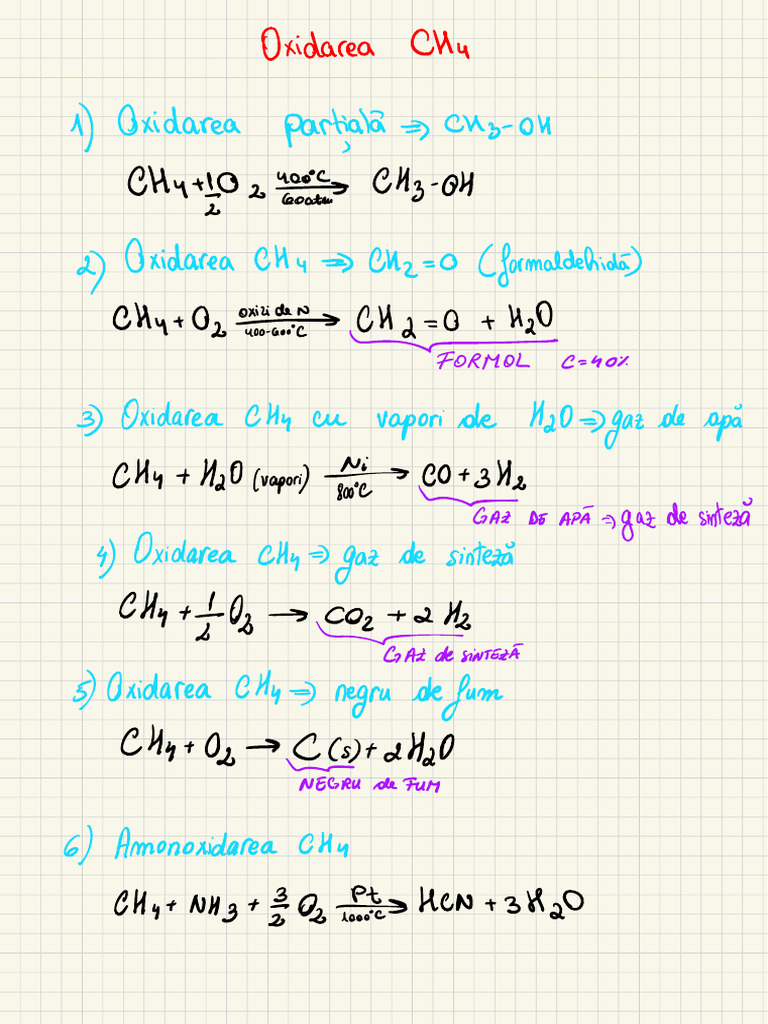 Oxidarea CH4
1) Oxidarea parțială => CH3-OH
CH4 + 1/2 O2 400°C 60atm → CH3-OH
2) Oxidarea CH4 => CH2=O (formaldehidă)
CH4 + O2 oxizi de N 400-600°C → CH2=O + H2O
FORMOL C=40%
3) Oxidarea CH4 cu vapori de H2O => gaz de apă
CH4 + H2O (vapori) Ni 800°C → CO + 3H2
GAZ DE APĂ => gaz de sinteză
4) Oxidarea CH4 => gaz de sinteză
CH4 + 1/2 O2 → CO2 + 2H2
GAZ de SINTEZĂ
5) Oxidarea CH4 => negru de fum
CH4 + O2 → C(s) + 2H2O
NEGRU de FUM
6) Amonoxidarea CH4
CH4 + NH3 + 3/2 O2 Pt 1000°C → HCN + 3H2O